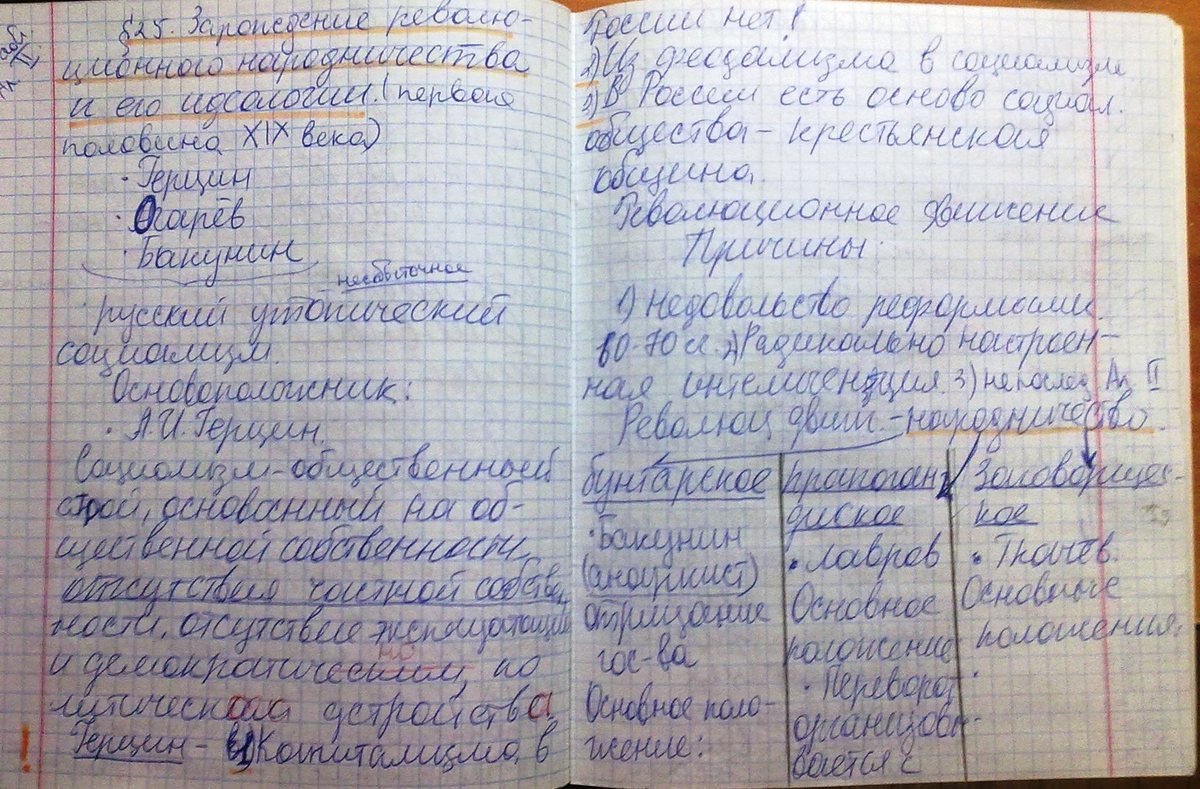 §25. Зарождение револю-
ционного народничества
и его идеологии. (первая
половина XIX века)
· Герцин
· Огарёв
· Бакунин
несбыточное
русский утопический
социализм.
Основоположник:
· А.И. Герцин.
Социализм - общественный
строй, основанный на об-
щественной собственности,
отсутствия частной собствен
ности, отсутствие эксплуатации
и демократическим, по
но
литического устройства
! Герцин - 1) Капитализма в
России нет!
2) Из феодализма в социализм
3) В России есть основа социал.
общества - крестьянская
община.
Революционное движение
Причины:
1) недовольство реформами
60-70 гг. 2) Радикально настроен-
ная интелигенция. 3) непослед. Ал. II
Революц. движ. - народничество.
бунтарское
· Бакунин
(анархист)
отрицание
гос-ва
Основное поло-
жение:
пропаган
дисское
· Лавров
Основное
положение
· Переворот
организовы-
вается с
Заговорщес-
кое
· Ткачёв.
Основные
положения: